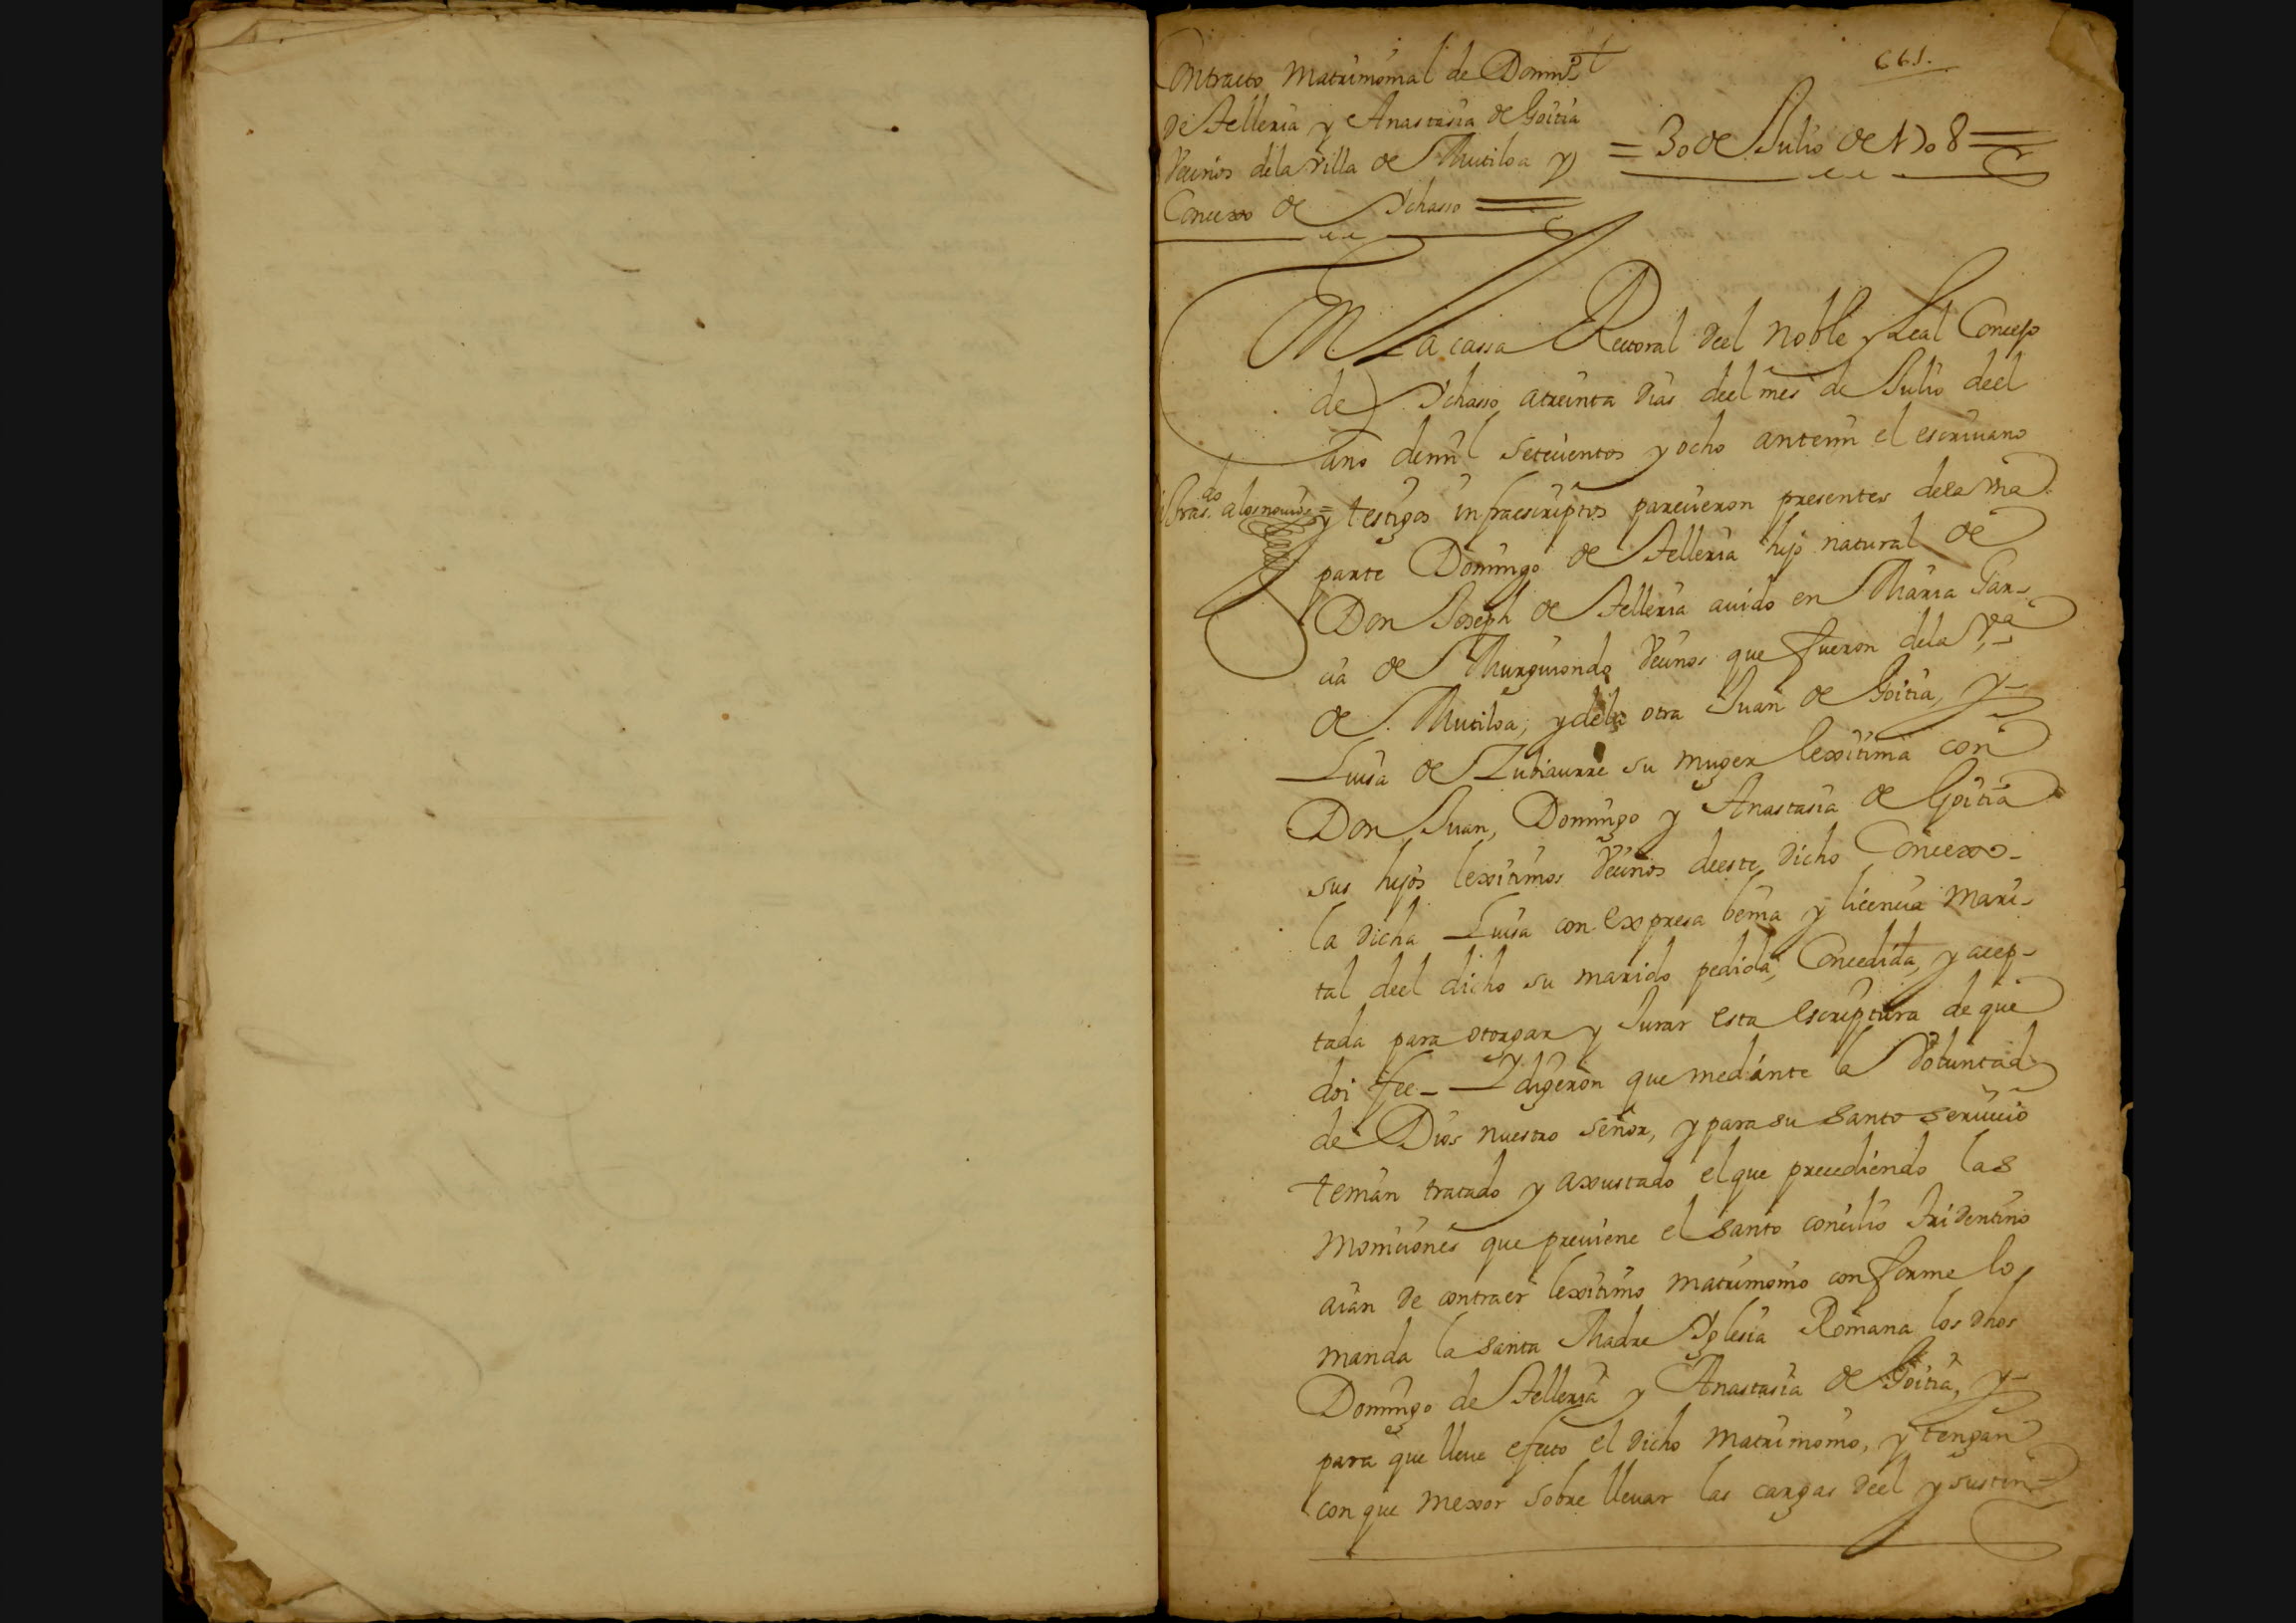 Contracto Matrimonial de Domin.º
de Telleria y Anastasia de Goitia
Vecinos dela villa de Mutiloa y
Concexo de Ychasso
661.
= 30 de Julio de 1708 =
En La cassa Rectoral deel noble y Leal Concejo
de Ychasso atreinta dias deel mes de Julio deel
año demil setecientos y ocho antemi el escriuano
y testigos infraescriptos parecieron presentes dela vna
parte Domingo de Telleria hijo natural de
Don Joseph de Telleria auido en Maria Gar-
cia de Murguiondo Vecinos que fueron dela Vª
de Mutiloa, y dela otra Juan de Goitia, y
Luisa de Zubiaurre su muger lexitima con
Don Juan, Domingo y Anastasia de Goitia
sus hijos lexitimos Vecinos deeste dicho Concexo-
la dicha Luisa con expresa benia y licencia mari-
tal deel dicho su marido pedida, Concedida, y acep-
tada para otorgar y Jurar esta escriptura de que
doi fee - Y digeron que mediante la Voluntad
de Dios nuestro señor, y para su santo seruicio
tenian tratado y axustado el que precediendo las
moniciones que preuiene el santo concilio tridentino
aian de contraer lexitimo matrimonio conforme lo
manda la santa Madre Yglesia Romana los dhos
Domingo de Telleria y Anastasia de Goitia, y
para que lleue efecto el dicho matrimonio, y tengan
con que mexor sobre lleuar las cargas deel y susten-